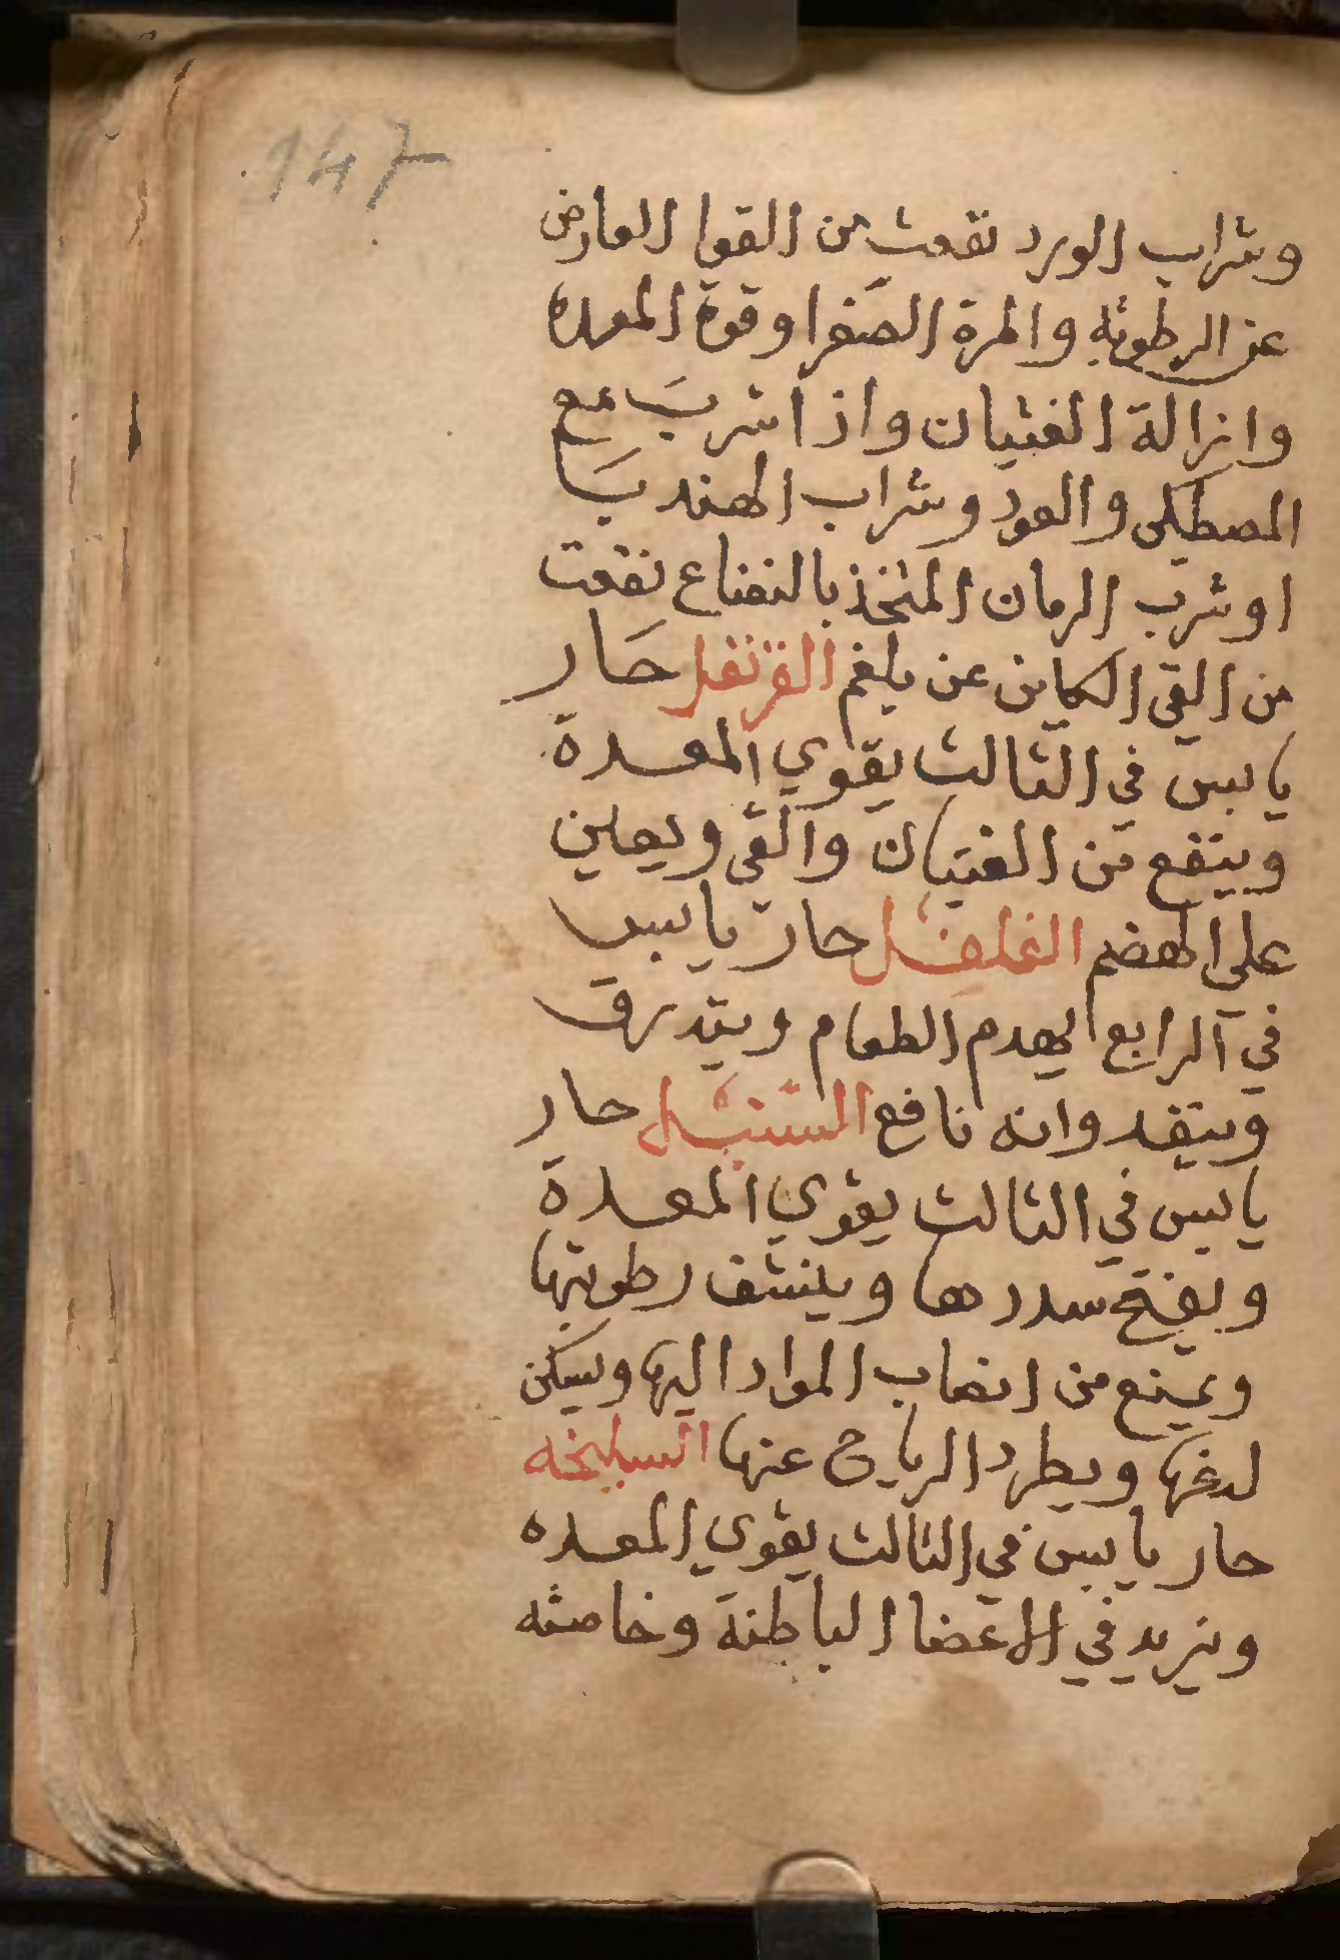 147
وشراب الورد نفعت من القوا العارض
عن الرطوبة والمرة الصفرا وقوة المعدة
وازالة الغثيان واذا شرب مع
المصطكى والعود وشراب الهندبا
او شرب الرمان المتخذ بالنعناع نفعت
من القى الكاين عن بلغم القرنفل حار
يابس في الثالث يقوي المعدة
وينفع من الغثيان والقى ويعين
على الهضم الفلفل حار يابس
في الرابع يهدم الطعام ويتدرق
وينفد وانه نافع السنبل حار
يابس في الثالث يقوي المعدة
ويفتح سددها وينشف رطوبتها
ويمنع من انصاب المواد اليها ويسكن
لدغها ويطرد الرياح عنها السليخه
حار يابس في الثالث يقوي المعده
ويزيد في الاعضا الباطنة وخاصته